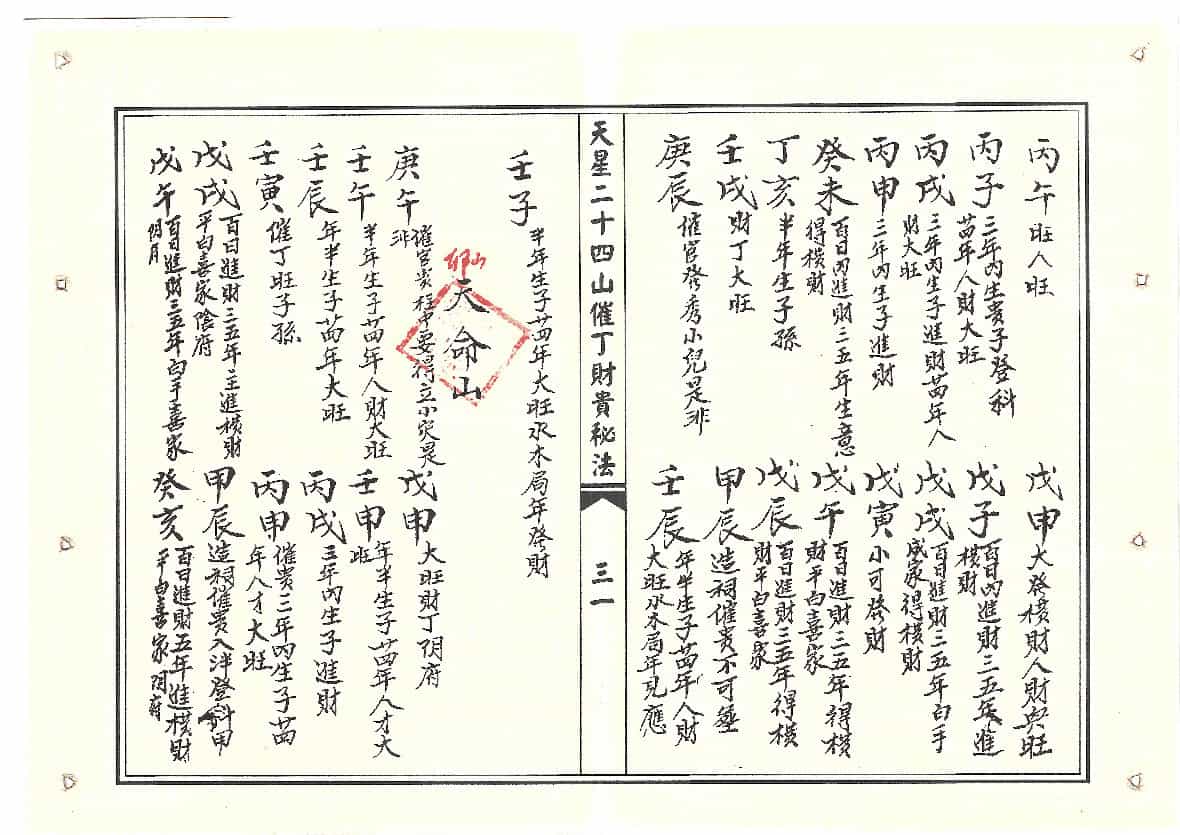 丙午旺人旺
戊申大發橫財人財興旺
丙子三年內生貴子登科
苗年人財大旺
戊子百日內進財三五年進
橫財
丙戌三年內生子進財苗年人
財大旺
戊戌百日進財三五年白手
成家得橫財
丙申三年內生子進財
戊寅小可發財
癸未百日內進財三五年生意
得橫財
戊午百日進財三五年得橫
財平白喜家
丁亥半年生子孫
戊辰百日進財三五年得橫
財平白喜家
壬戌財丁大旺
甲辰造祠催貴不可
庚辰催官發秀小兒是非
壬辰年半生子苗年人財
大旺水木局年見應
天星二十四山催丁財貴秘法
三一
壬子半年生子苗年大旺水木局年發財
仙山
天命山
庚午催官貴旺中要得立小災是
非
戊申大旺財丁阴府
壬午半年生子苗年人財大旺
壬申年半生子苗年人才大
旺
壬辰年半生子苗年大旺
丙戌三年內生子進財
壬寅催丁旺子孫
丙申催貴三年內生子苗
年人才大旺
戊戌百日進財三五年主進橫財
平白喜家陰府
甲辰造祠催貴入泮登科甲
戊午百日進財三五年白手喜家
阴月
癸亥百日進財五年進橫財
平白喜家阴府